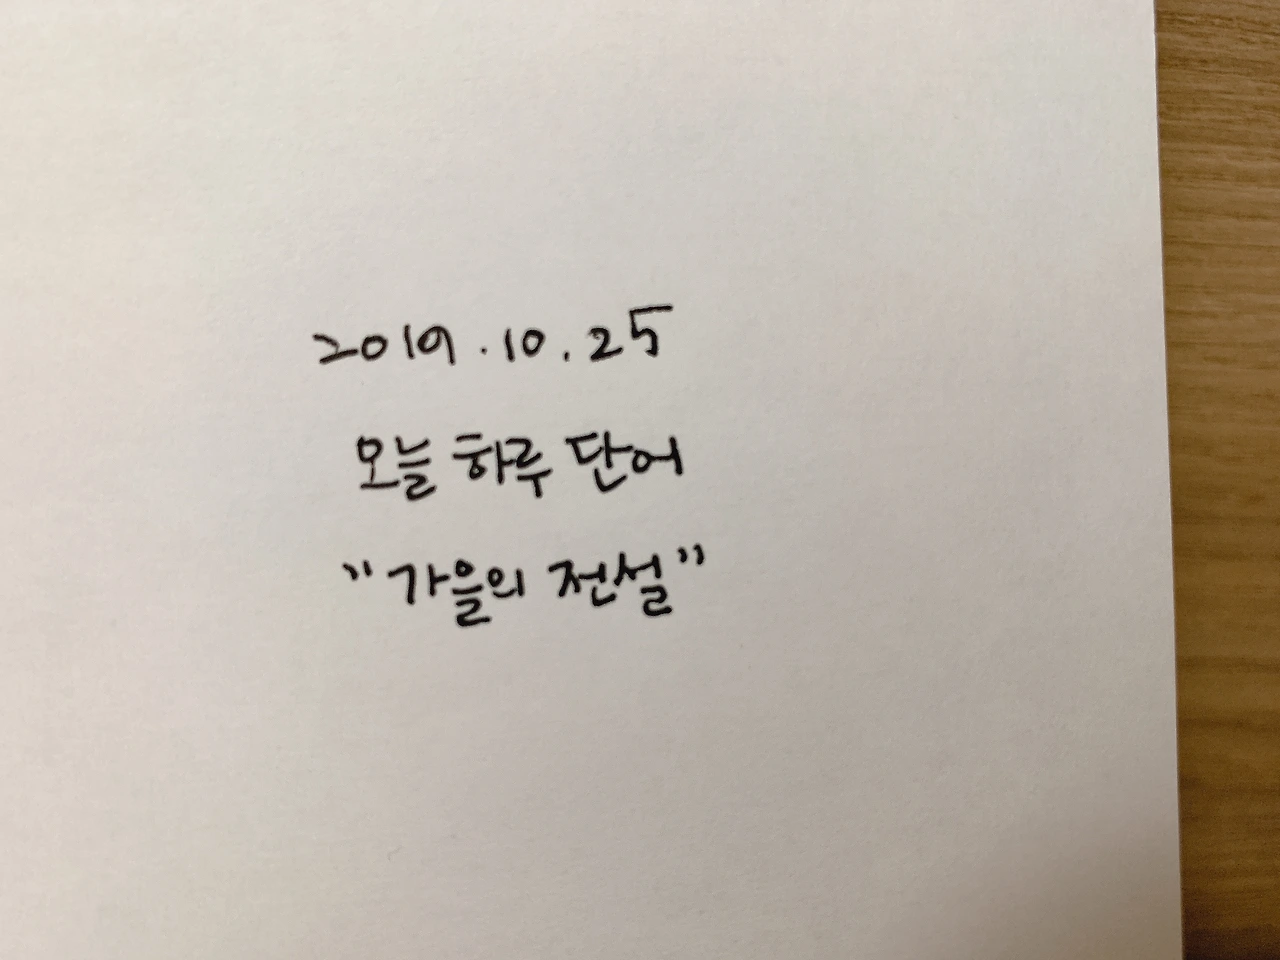 2019.10.25
오늘 하루 단어
"가을의 전설"